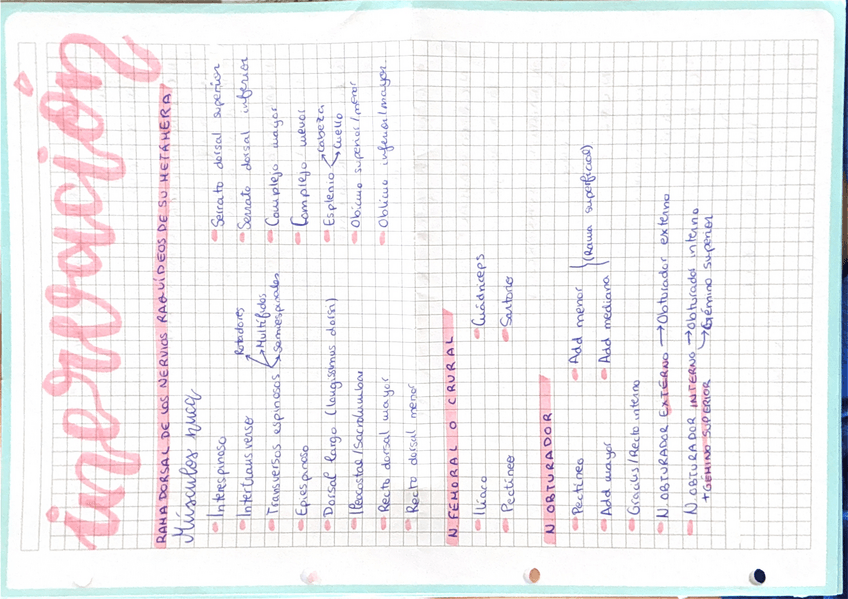 inervación
RAMA DORSAL DE LOS NERVIOS RAQUÍDEOS DE SU METÁMERA
Músculos nuca
Interespinoso
Intertransverso
Transversos espinosos → Rotadores
→ Multífidos
→ Semiespinales
Epiespinoso
Dorsal largo (longissimus dorsi)
Iliocostal/Sacrolumbar
Recto dorsal mayor
Recto dorsal menor
Serrato dorsal superior
Serrato dorsal inferior
Complejo mayor
Complejo menor
Esplenio → Cabeza
→ Cuello
Oblicuo superior/menor
Oblicuo inferior/mayor
N. FEMORAL O CRURAL
Ilíaco
Pectíneo
Cuádriceps
Sartorio
N. OBTURADOR
Pectíneo
Add mayor
Gracilis/Recto interno
Add menor
Add mediano
} (Rama superficial)
N. OBTURADOR EXTERNO → Obturador externo
N. OBTURADOR INTERNO → Obturador interno
+ GÉMINO SUPERIOR → Gémino superior